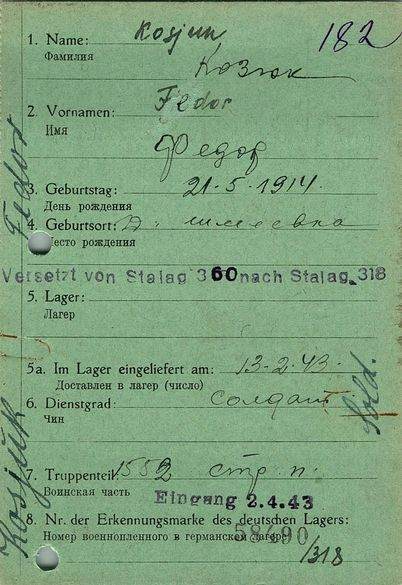 182
1. Name: Kosjuk
Фамилия Козюк
2. Vornamen: Fedor
Имя
Федор
3. Geburtstag: 21-5-1914.
День рождения
4. Geburtsort: Д.
Место рождения
Versetzt von Stalag 360 nach Stalag 318
5. Lager:
Лагерь
5a. Im Lager eingeliefert am: 13-2-43.
Доставлен в лагерь (число)
6. Dienstgrad: солдат
Чин
Sold.
7. Truppenteil: 1552 стр. п.
Воинская часть
Eingang 2.4.43
8. Nr. der Erkennungsmarke des deutschen Lagers:
Номер военнопленного в германском лагере:
58490
/318
Kosjuk Fedor